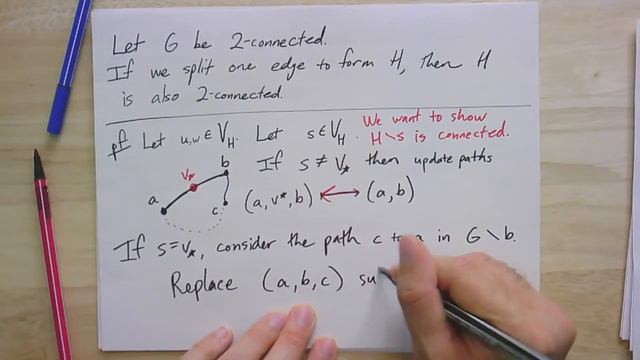 Let G be 2-connected.
If we split one edge to form H, then H
is also 2-connected.
pf Let u,w ∈ V_H. Let s ∈ V_H. We want to show
H\s is connected.
If s ≠ v_* then update paths
v_* b
a c
(a, v*, b) ↔ (a, b)
If s = v_*, consider the path c to a in G \ b.
Replace (a, b, c) su